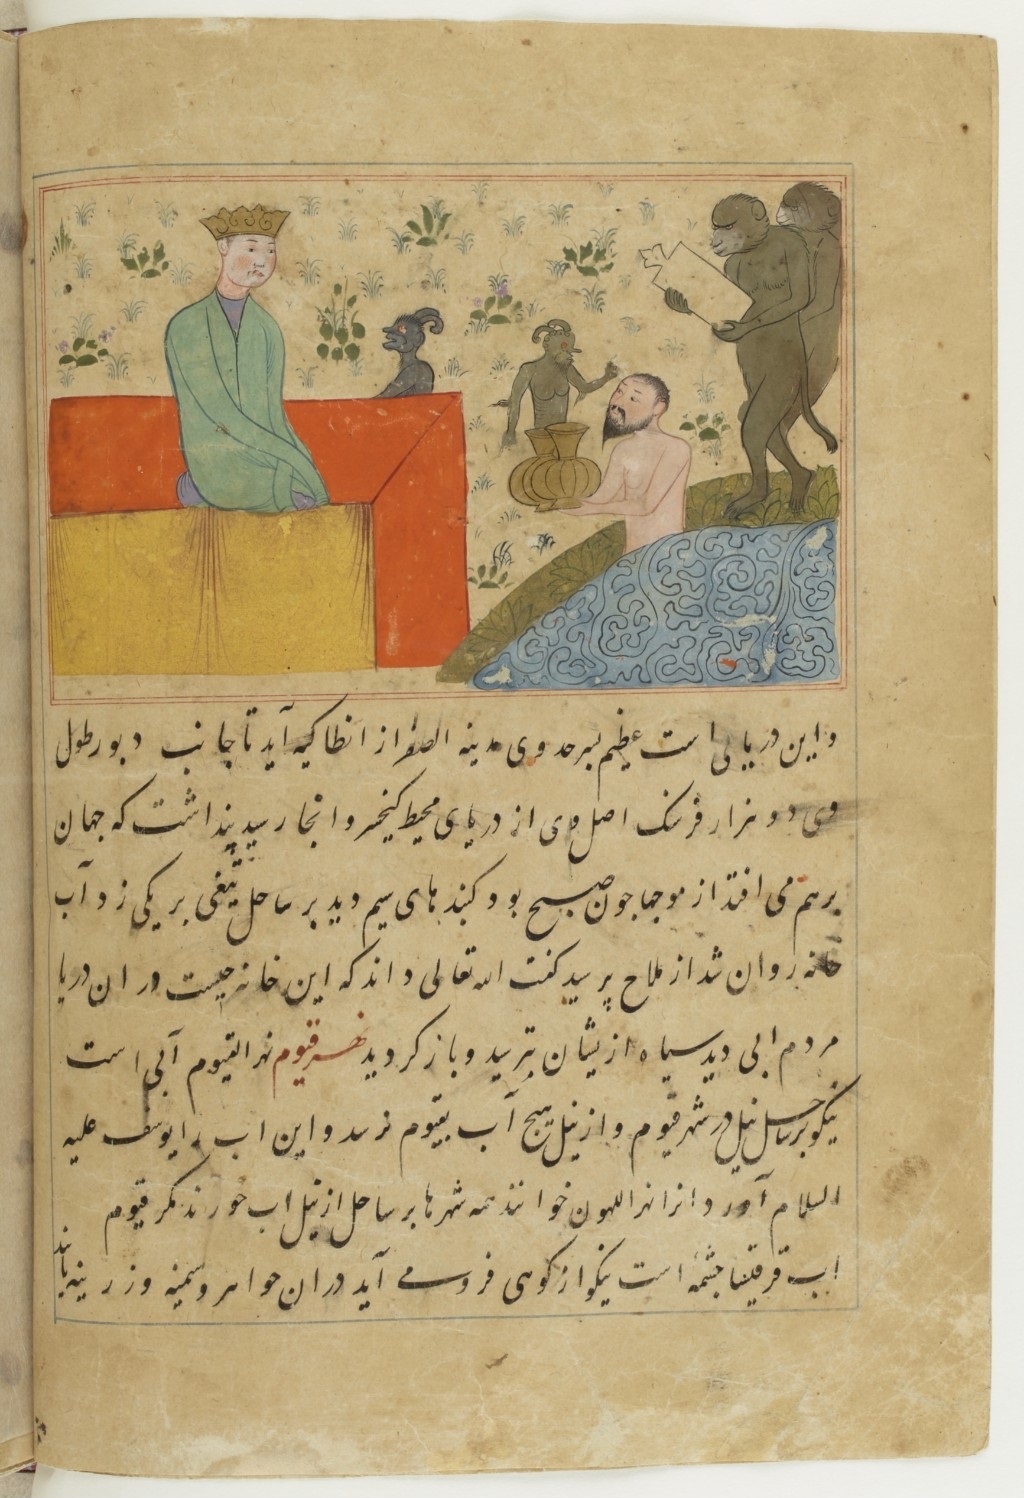 و این دریایی است عظیم بسرحد وی مدینه الصفر از انطاکیه آید تا جانب دبور طول
وی دو هزار فرسنک اصل وی از دریای محیط کیخسرو انجا رسید پنداشت که جهان
برهم می افتد از موجها جون صبح بود کنبدهای سیم دید بر ساحل تیغی بر یکی زد آب
خانه روان شد از ملاح پرسید کفت الله تعالی داند که این خانه جیست در ان دریا
مردم ابی دید سیاه از یشان بترسید و باز کردید نهر فیوم نهر الفیوم آبی است
نیکو بر ساحل نیل در شهر فیوم و از نیل هیج آب بفیوم نرسد و این اب را یوسف علیه
السلام آورد و انرا نهر اللهون خوانند همه شهرها بر ساحل از نیل اب خورند مکر فیوم
اب جشمه است نیکو از کوهی فرو می آید در ان جواهر و سیمینه و زرینه یابند